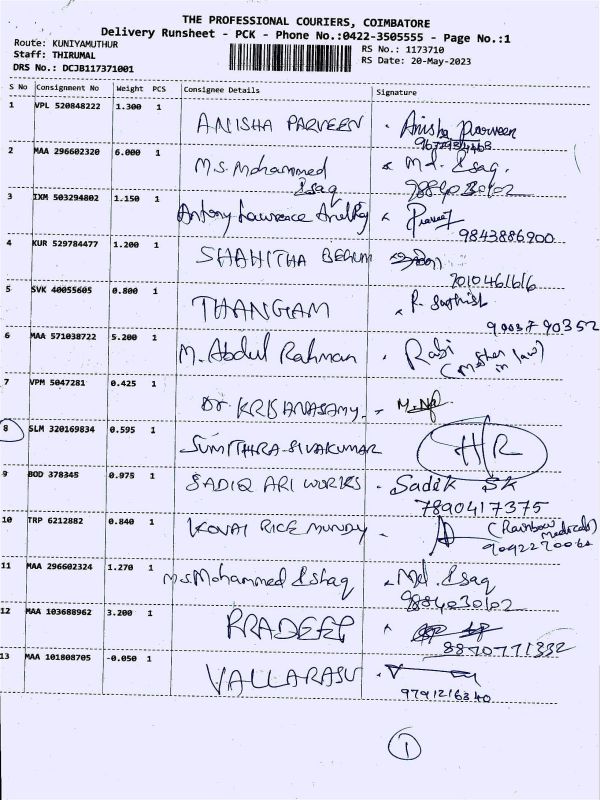 THE PROFESSIONAL COURIERS, COIMBATORE
Delivery Runsheet - PCK - Phone No.:0422-3505555 - Page No.:1
Route: KUNIYAMUTHUR
RS No.: 1173710
Staff: THIRUMAL
RS Date: 20-May-2023
DRS No.: DCJB117371001
S No Consignment No Weight PCS Consignee Details Signature
1 VPL 520848222 1.300 1 ANISHA PARVEEN Anisha Parveen
2 MAA 296602320 6.000 1 M.S. Mohammed Esaq Md. Esaq.
3 IXM 503294802 1.150 1 Antony Lawrence
9843886900
4 KUR 529784477 1.200 1 SHAHITHA BEGUM
7010461616
5 SVK 40055605 0.800 1 THANGAM
9003790352
6 MAA 571038722 5.200 1 M. Abdul Rahman Rabi (Mother in law)
7 VPM 5047281 0.425 1 Dr KRISHNASAMY.
8 SLM 320169834 0.595 1 SUMITHRA-SIVAKUMAR H/R
9 BOD 378345 0.975 1 SADIQ ARI WORKS Sadik SK
7890417375
10 TRP 6212882 0.840 1 KOVAI RICE MUNDY (Rainbow Medicals)
11 MAA 296602324 1.270 1 M.S Mohammed Eshaq Md. Esaq
9884030102
12 MAA 103688962 3.200 1 PRADEEP
8870771332
13 MAA 101808705 -0.050 1 VALLARASU
9791216340
1